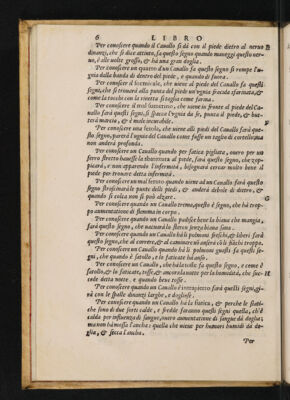 6 LIBRO
Per conoscere quando il Cauallo si dà con il piede dietro al neruo B
dinanzi, che si dice attinto, fa questo segno quando maneggi questo ner-
uo, è alle volte grosso, & hà una gran doglia.
Per conoscere quanto d'un Cauallo fa questo segno si rompe l'u-
gnia dalla banda di dentro del piede, e quando di fuora.
Per conoscer il formicale, che viene al piede del Cauallo fa questi
segni, che si trouarà alla punta del piede un'ugnia fracida sfarinata, &
come la ruoda con la rosetta si taglia come farina.
Per conoscere il mal che viene in fronte al piede del Ca-
uallo farà questi segni, si spacca l'ugnia da se, ponta al piede, &
& è male incurabile.
Per conoscere una setola, che viene alli piedi del Cauallo farà que-
sto segno, parerà l'ugnia del Cauallo come fusse un taglio di cortellina
non anderà profonda.
Per conoscere un Cauallo quando per fatica pigliata, ouero per un
ferro stretto hauesse la al piede, farà questo segno, che zop-
picarà, e non apparendo l'infermità, bisognarà cercar molto bene al
piede per trouare detta infermità.
Per conoscere un mal ferro quando viene ad un Cauallo farà questo
segno strascinarà le punte delli piedi, & anderà debole di dietro, &
quando si colca non si può alzare.
Per conoscere quando un Cauallo trema, questo è segno, che hà trop-
po aumentatione di flemma in corpo.
Per conoscere quando un Cauallo patisce bene la biaua che mangia,
farà questo segno, che uscirà lo sterco senza biaua.
Per conoscere quando un Cauallo hà li polmoni freschi, & liberi farà
questo segno, che al correre, & al caminare nõ aprirà ò li fiãchi troppo.
Per conoscere un Cauallo quando hà li polmoni guasti fa questi se-
gni, che quando è satollo, e lo faticate hà ansie.
Per conoscere un Cauallo, che hà la tosse fa questo segno, e come è
satollo, & lo faticate, tosse, & ancora la notte per la humidità, che suc- H
cede detta notte. e quando beue tosse.
Per conoscere quando un Cauallo è intrapietto farà questi segni, gi-
rà con le spalle dinanzi larghe, e dogliose.
Per conoscere quando un Cauallo hà la fiatica, & perche le fiati-
che sono di due sorti calde, e fredde faranno questi segni quella, ch'è
calda per influenza di sangue, ouero aumentatione di sangue dà doglia;
ma non hà mossa l'anche: quella che viene per humori humidi dà do-
glia, & secca l'anche.
Per